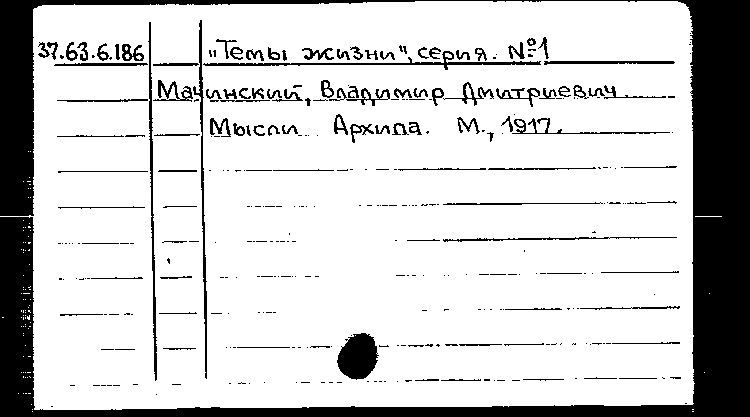 37.63.6.186 „Темы жизни", серия. №1
Мачинский, Владимир Дмитриевич.
Мысли Архипа. М., 1917.